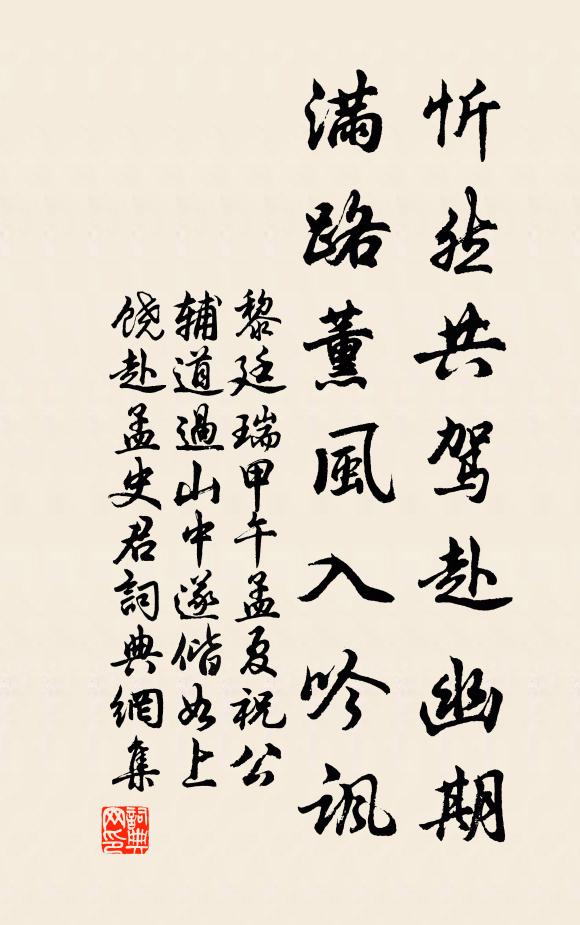 忻然共驾赴幽期
满路薰風入吟讽
黎廷瑞甲午孟夏祝公
辅道過山中遂偕如上
饶赴孟史君詞典網集
詞典
网印